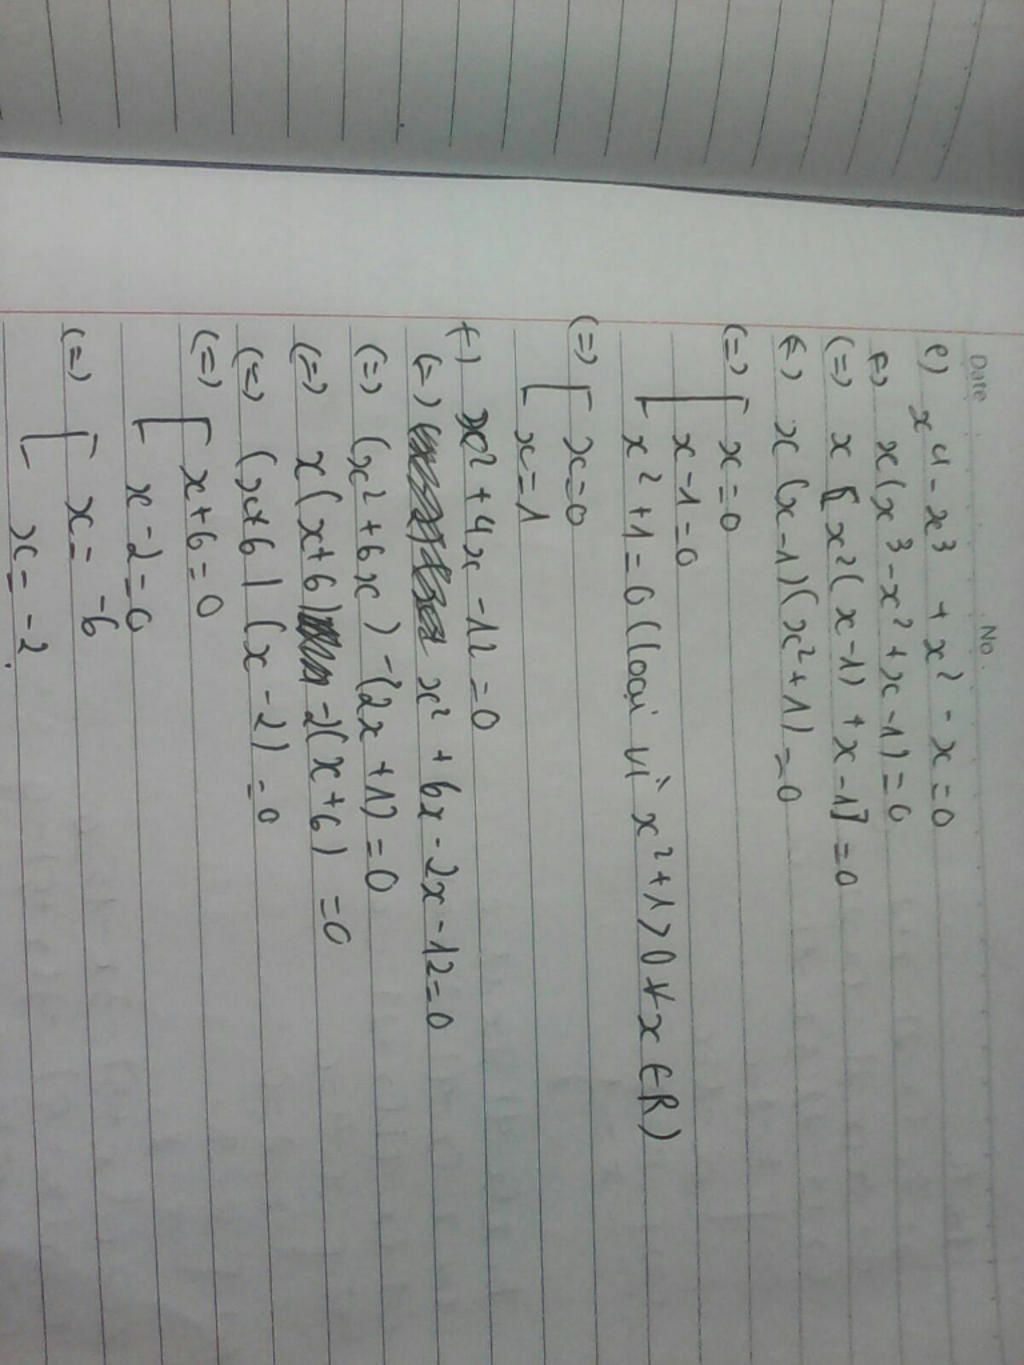 Date No.
e) x⁴ - x³ + x² - x = 0
(=) x(x³ - x² + x - 1) = 0
(=) x [x²(x - 1) + x - 1] = 0
(=) x (x - 1)(x² + 1) = 0
(=) [ x = 0
x - 1 = 0
x² + 1 = 0 (loại vì x² + 1 > 0 ∀ x ∈ R)
(=) [ x = 0
x = 1
f) x² + 4x - 12 = 0
(=) x² + 6x - 2x - 12 = 0
(=) (x² + 6x) - (2x + 12) = 0
(=) x(x + 6) - 2(x + 6) = 0
(=) (x + 6) (x - 2) = 0
(=) [ x + 6 = 0
x - 2 = 0
(=) [ x = -6
x = -2.